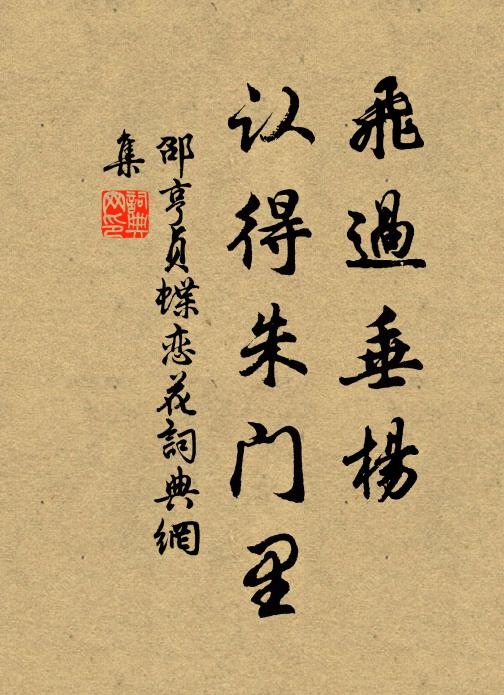 飛過垂楊
认得朱门里
邵亨貞蝶恋花詞典網
集
詞典网印